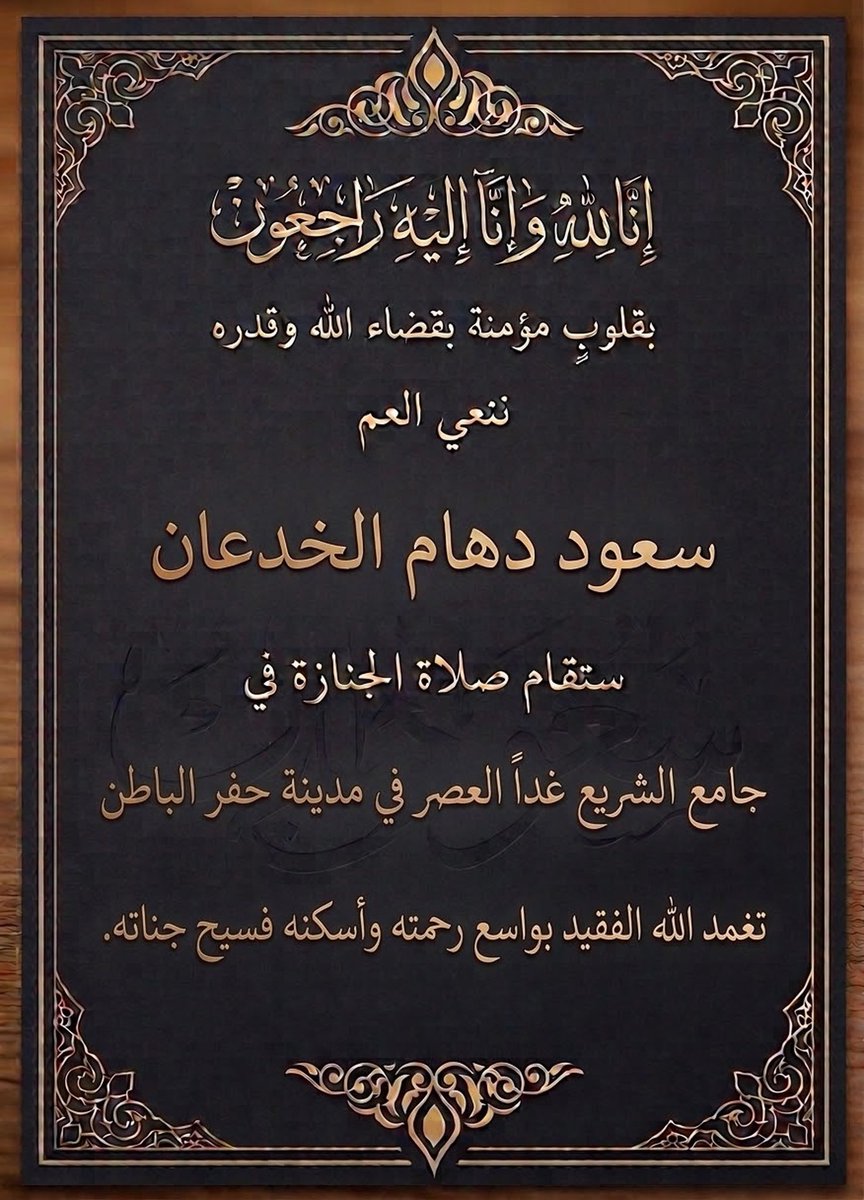 إِنَّا لِلَّهِ وَإِنَّا إِلَيْهِ رَاجِعُونَ
بقلوبٍ مؤمنة بقضاء الله وقدره
ننعي العم
سعود دهام الخدعان
ستقام صلاة الجنازة في
جامع الشريع غداً العصر في مدينة حفر الباطن
تغمد الله الفقيد بواسع رحمته وأسكنه فسيح جناته.